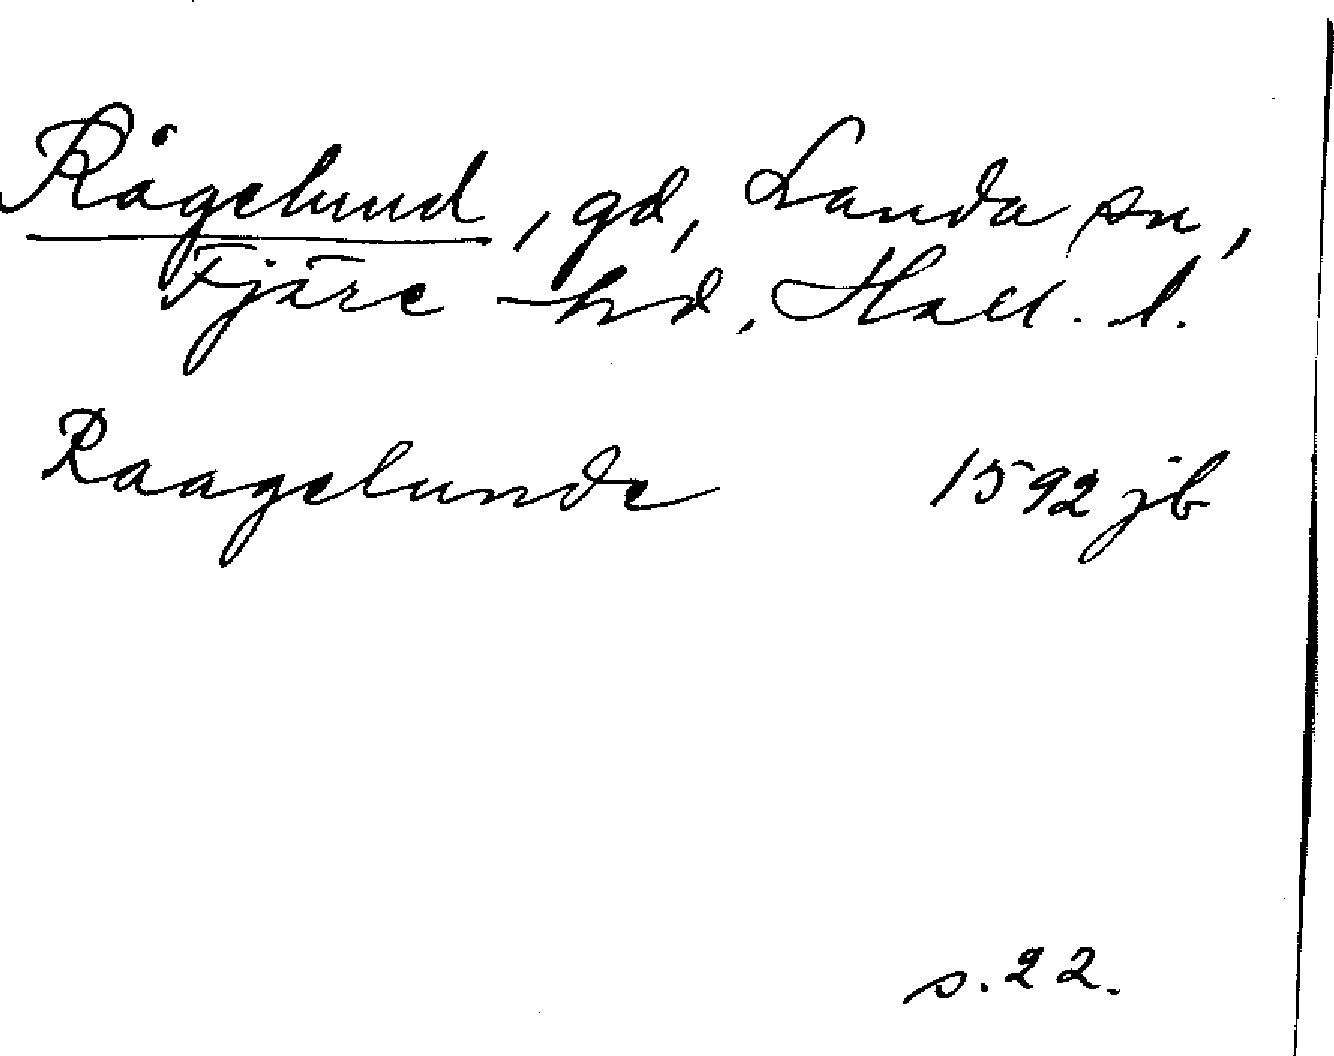 Rågelund, gd, Landa sn,
Fjäre hd, Hall. l.
Raagelunde 1592 jb
s. 22.